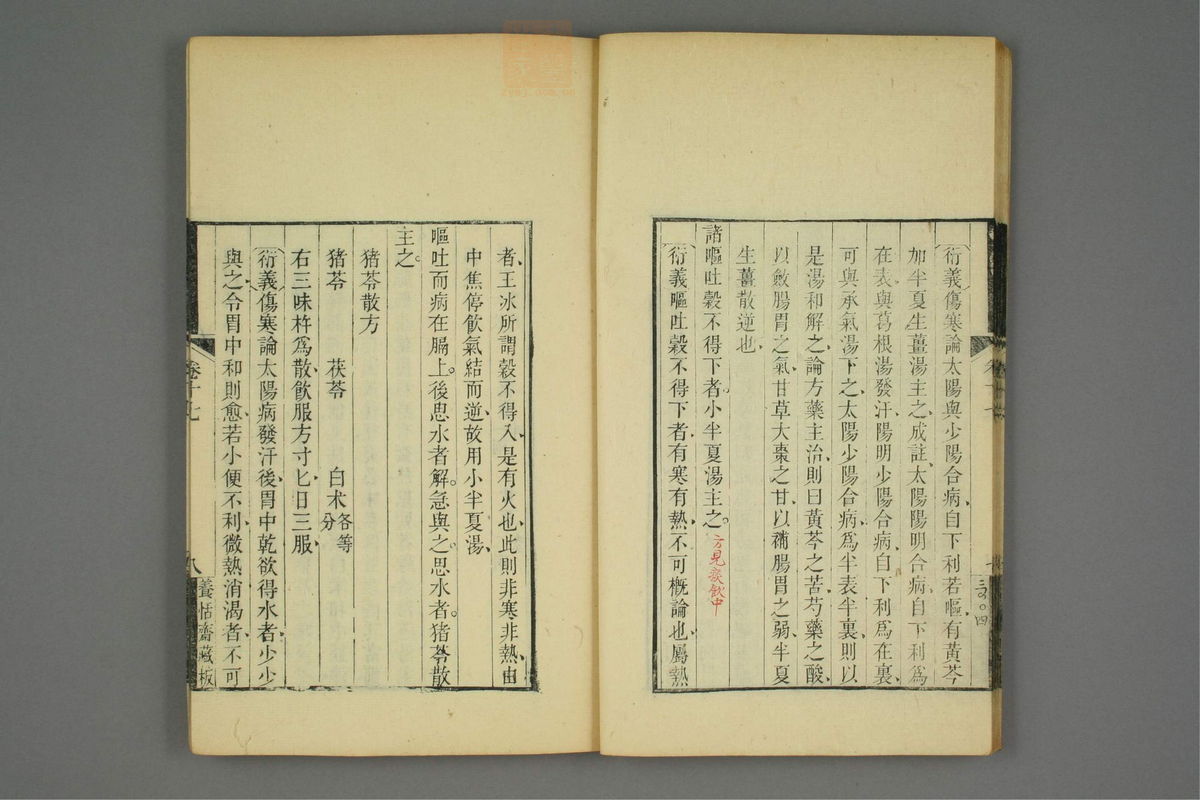 衍義傷寒論太陽與少陽合病自下利若嘔有黃芩
加半夏生薑湯主之成註太陽陽明合病自下利爲
在表與葛根湯發汗陽明少陽合病自下利爲在裏
可與承氣湯下之太陽少陽合病爲半表半裏則以
是湯和解之論方藥主治則曰黃芩之苦芍藥之酸
以斂腸胃之氣甘草大棗之甘以補腸胃之弱半夏
生薑散逆也
諸嘔吐穀不得下者小半夏湯主之。方見痰飲中
衍義嘔吐穀不得下者有寒有熱不可槪論也屬熱
者王冰所謂穀不得入是有火也此則非寒非熱由
中焦停飮氣結而逆故用小半夏湯
嘔吐而病在膈上。後思水者解。急與之。思水者。猪苓散
主之。
猪苓散方
猪苓 茯苓 白术各等分
右三味杵爲散飮服方寸匕日三服
衍義傷寒論太陽病發汗後胃中乾欲得水者少少
與之令胃中和則愈若小便不利微熱消渴者不可
卷十七
八
養恬齋藏板